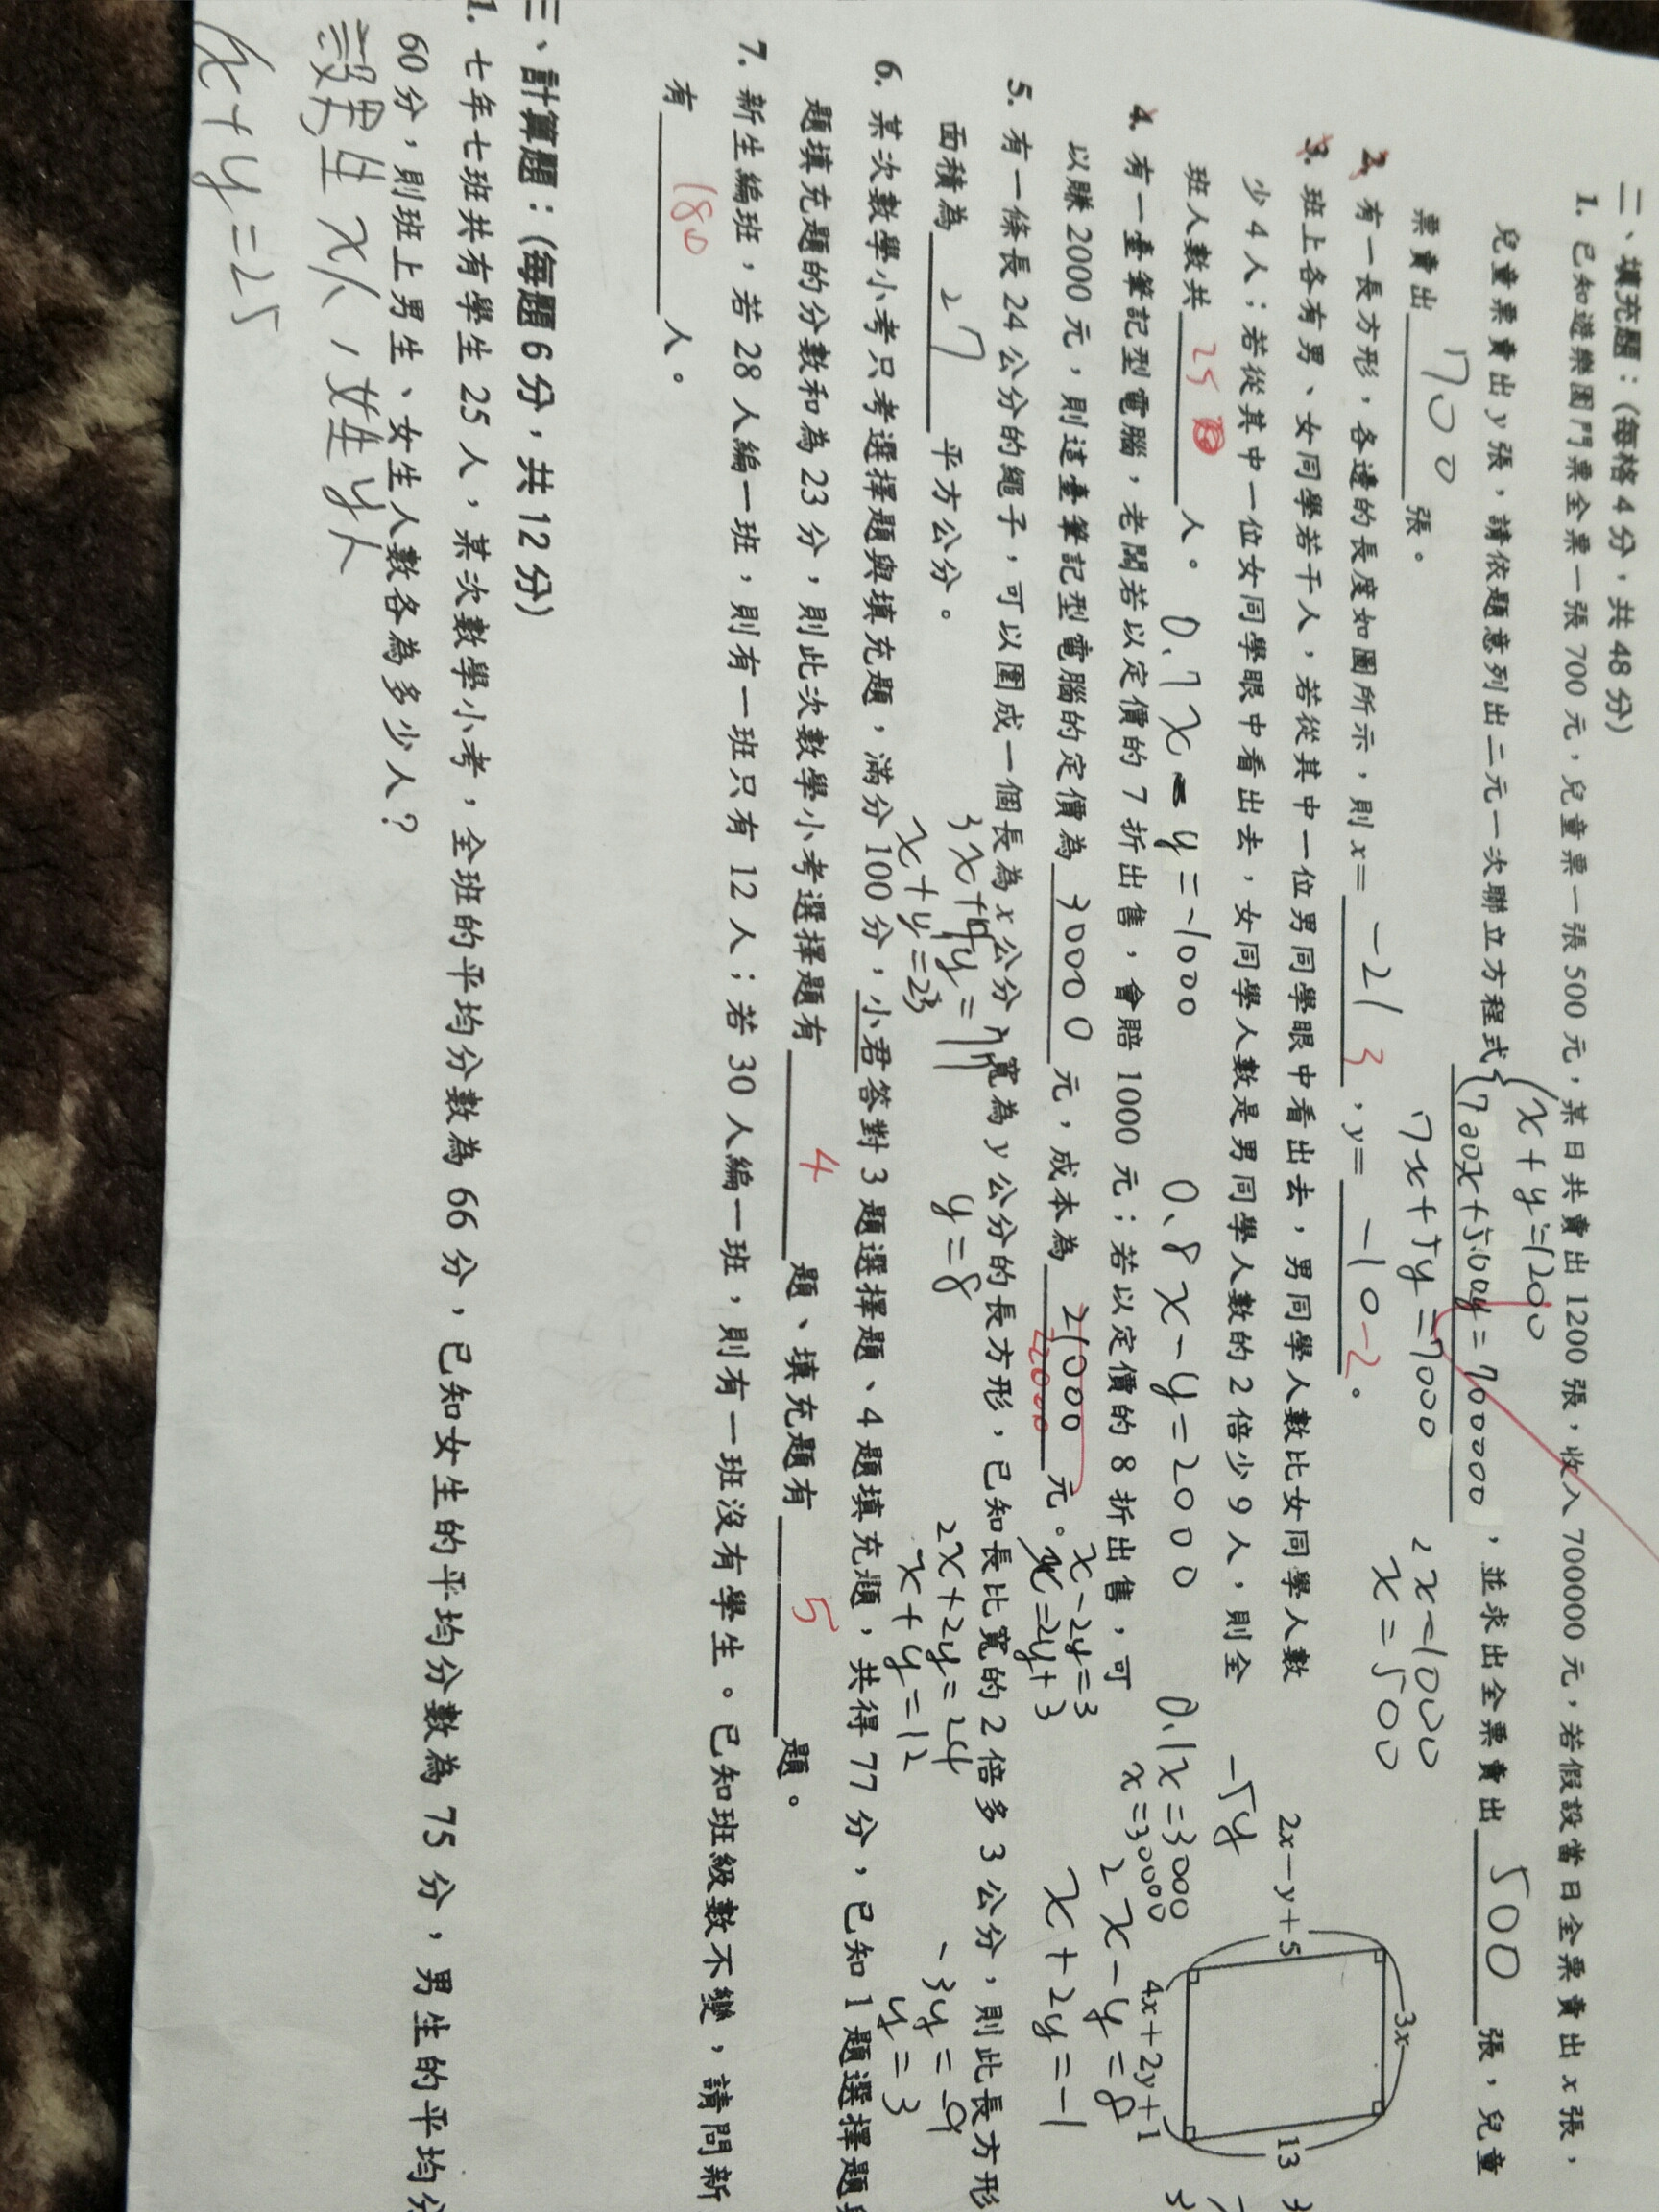 二、填充題：(每格4分，共48分)
1. 已知遊樂園門票全票一張700元，兒童票一張500元，某日共賣出1200張，收入700000元，若假設當日全票賣出x張，
x+y=1200
兒童票賣出y張，請依題意列出二元一次聯立方程式{700x+500y=700000，並求出全票賣出500張，兒童
票賣出700張。
7x+5y=7000
2x=1000
x=500
2. 有一長方形，各邊的長度如圖所示，則x= -21 3，y= -10 -2。
3x
2x-y+5
13
4x+2y+1
3. 班上各有男、女同學若干人，若從其中一位男同學眼中看出去，男同學人數比女同學人數
少4人；若從其中一位女同學眼中看出去，女同學人數是男同學人數的2倍少9人，則全
班人數共25人。
-5y
0.7x-y=-1000
0.8x-y=2000
0.1x=3000
x=30000
4. 有一臺筆記型電腦，老闆若以定價的7折出售，會賠1000元；若以定價的8折出售，可
以賺2000元，則這臺筆記型電腦的定價為30000元，成本為21000 22000元。
x-2y=3
x=2y+3
2x-y=8
x+2y=-1
5. 有一條長24公分的繩子，可以圍成一個長為x公分、寬為y公分的長方形，已知長比寬的2倍多3公分，則此長方形
面積為27平方公分。
3x+4y=77
x+y=23
y=8
2x+2y=24
x+y=12
-3y=-9
y=3
6. 某次數學小考只考選擇題與填充題，滿分100分，小君答對3題選擇題、4題填充題，共得77分，已知1題選擇題與
題填充題的分數和為23分，則此次數學小考選擇題有4題、填充題有5題。
7. 新生編班，若28人編一班，則有一班只有12人；若30人編一班，則有一班沒有學生。已知班級數不變，請問新
有180人。
三、計算題：(每題6分，共12分)
1. 七年七班共有學生25人，某次數學小考，全班的平均分數為66分，已知女生的平均分數為75分，男生的平均分
60分，則班上男生、女生人數各為多少人？
設男生x人，女生y人
x+y=25